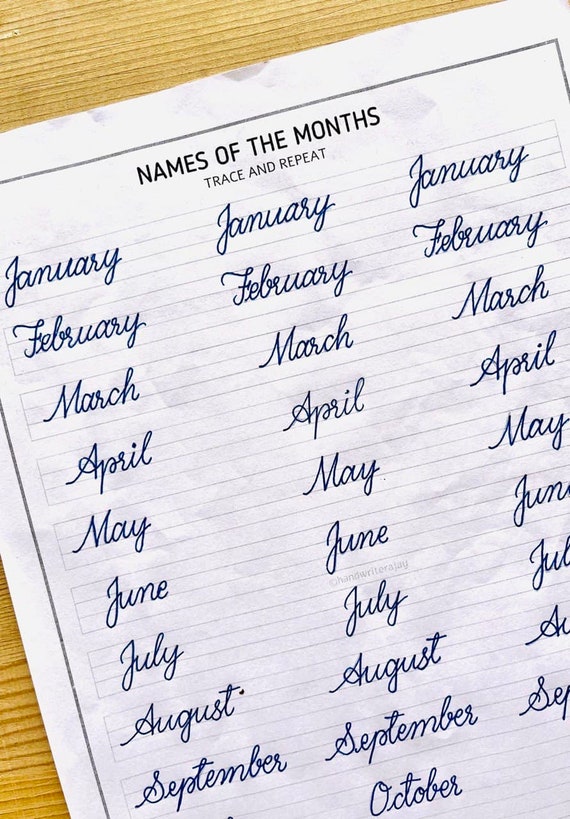 NAMES OF THE MONTHS
TRACE AND REPEAT
January January January
February February February
March March March
April April April
May May May
June June June
©handwriterajay
July July July
August August Au
September September Sep
October